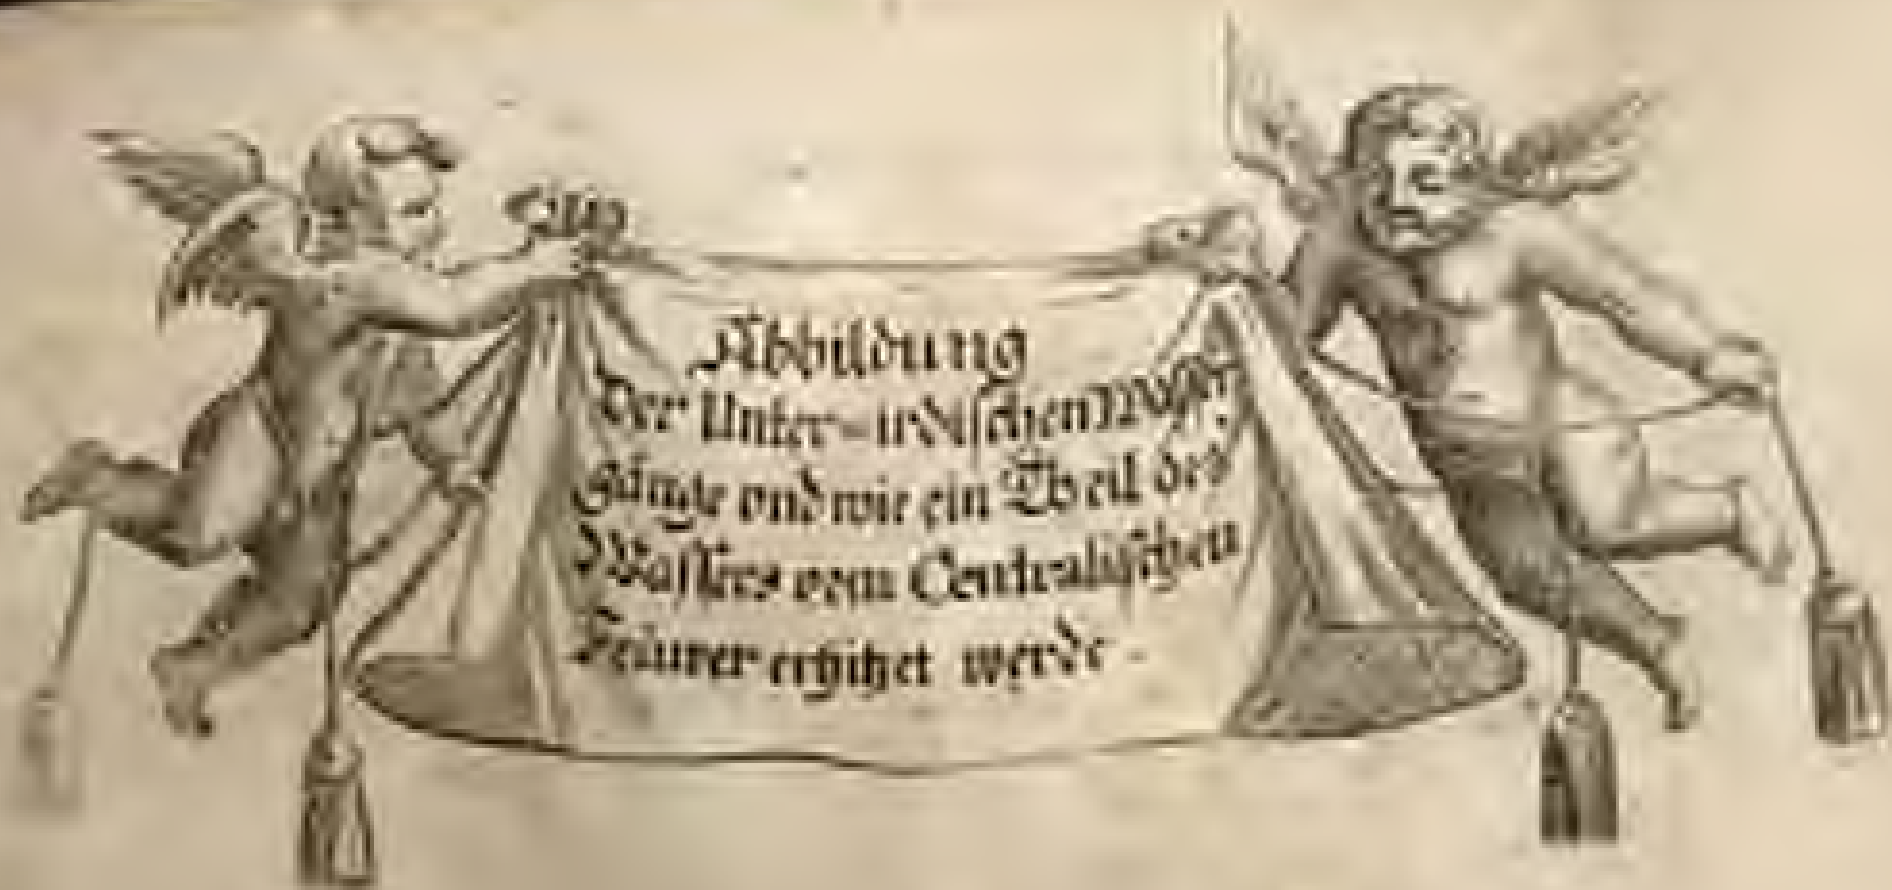 Abbildung
Der Unter-irdischen Wasser
gänge vnd wie ein Theil des
Wassers vom Centralischen
Feüwer erhitzet werde